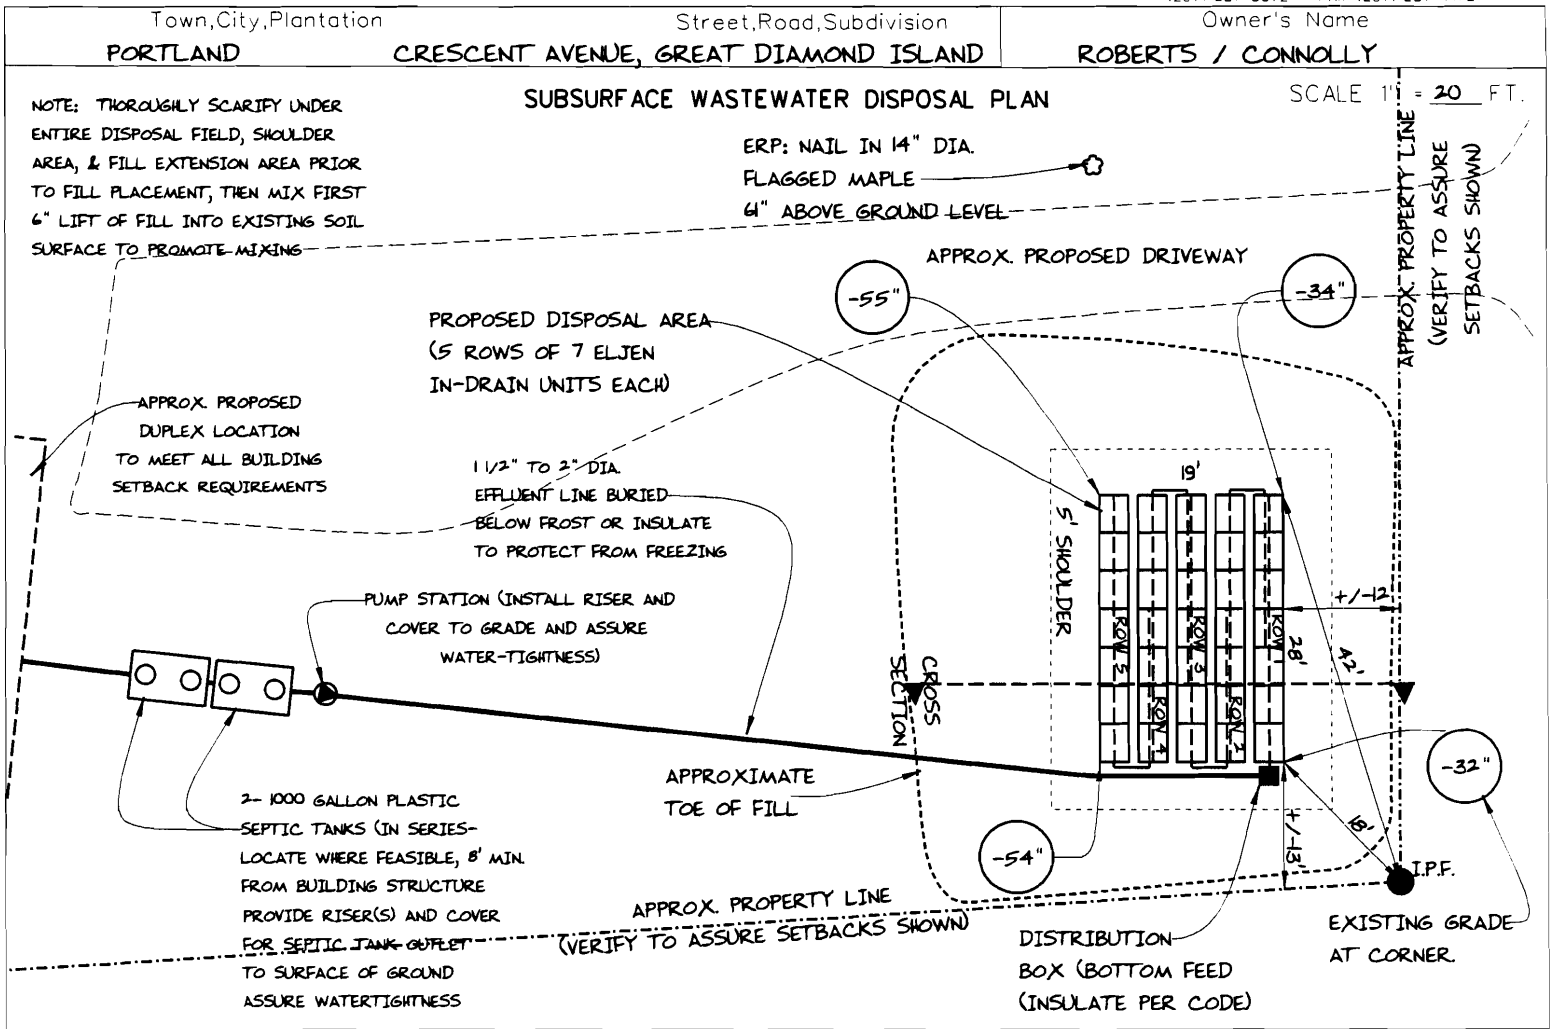 Town,City,Plantation
Street,Road,Subdivision
Owner's Name
PORTLAND
CRESCENT AVENUE, GREAT DIAMOND ISLAND
ROBERTS / CONNOLLY
SUBSURFACE WASTEWATER DISPOSAL PLAN
SCALE 1" = 20 FT.
NOTE: THOROUGHLY SCARIFY UNDER
ENTIRE DISPOSAL FIELD, SHOULDER
AREA, & FILL EXTENSION AREA PRIOR
TO FILL PLACEMENT, THEN MIX FIRST
6" LIFT OF FILL INTO EXISTING SOIL
SURFACE TO PROMOTE MIXING
ERP: NAIL IN 14" DIA.
FLAGGED MAPLE
61" ABOVE GROUND LEVEL
APPROX. PROPERTY LINE
(VERIFY TO ASSURE
SETBACKS SHOWN)
APPROX. PROPOSED DRIVEWAY
-55"
-34"
PROPOSED DISPOSAL AREA
(5 ROWS OF 7 ELJEN
IN-DRAIN UNITS EACH)
APPROX. PROPOSED
DUPLEX LOCATION
TO MEET ALL BUILDING
SETBACK REQUIREMENTS
1 1/2" TO 2" DIA.
EFFLUENT LINE BURIED
BELOW FROST OR INSULATE
TO PROTECT FROM FREEZING
19'
5' SHOULDER
PUMP STATION (INSTALL RISER AND
COVER TO GRADE AND ASSURE
WATER-TIGHTNESS)
+/-12
ROW 5
ROW 3
ROW 1
28'
42'
CROSS
SECTION
ROW 4
ROW 2
-32"
APPROXIMATE
TOE OF FILL
2- 1000 GALLON PLASTIC
SEPTIC TANKS (IN SERIES-
LOCATE WHERE FEASIBLE, 8' MIN.
FROM BUILDING STRUCTURE
PROVIDE RISER(S) AND COVER
FOR SEPTIC TANK OUTLET
TO SURFACE OF GROUND
ASSURE WATERTIGHTNESS
-54"
+/-13'
18'
I.P.F.
APPROX. PROPERTY LINE
(VERIFY TO ASSURE SETBACKS SHOWN)
DISTRIBUTION
BOX (BOTTOM FEED
(INSULATE PER CODE)
EXISTING GRADE
AT CORNER.